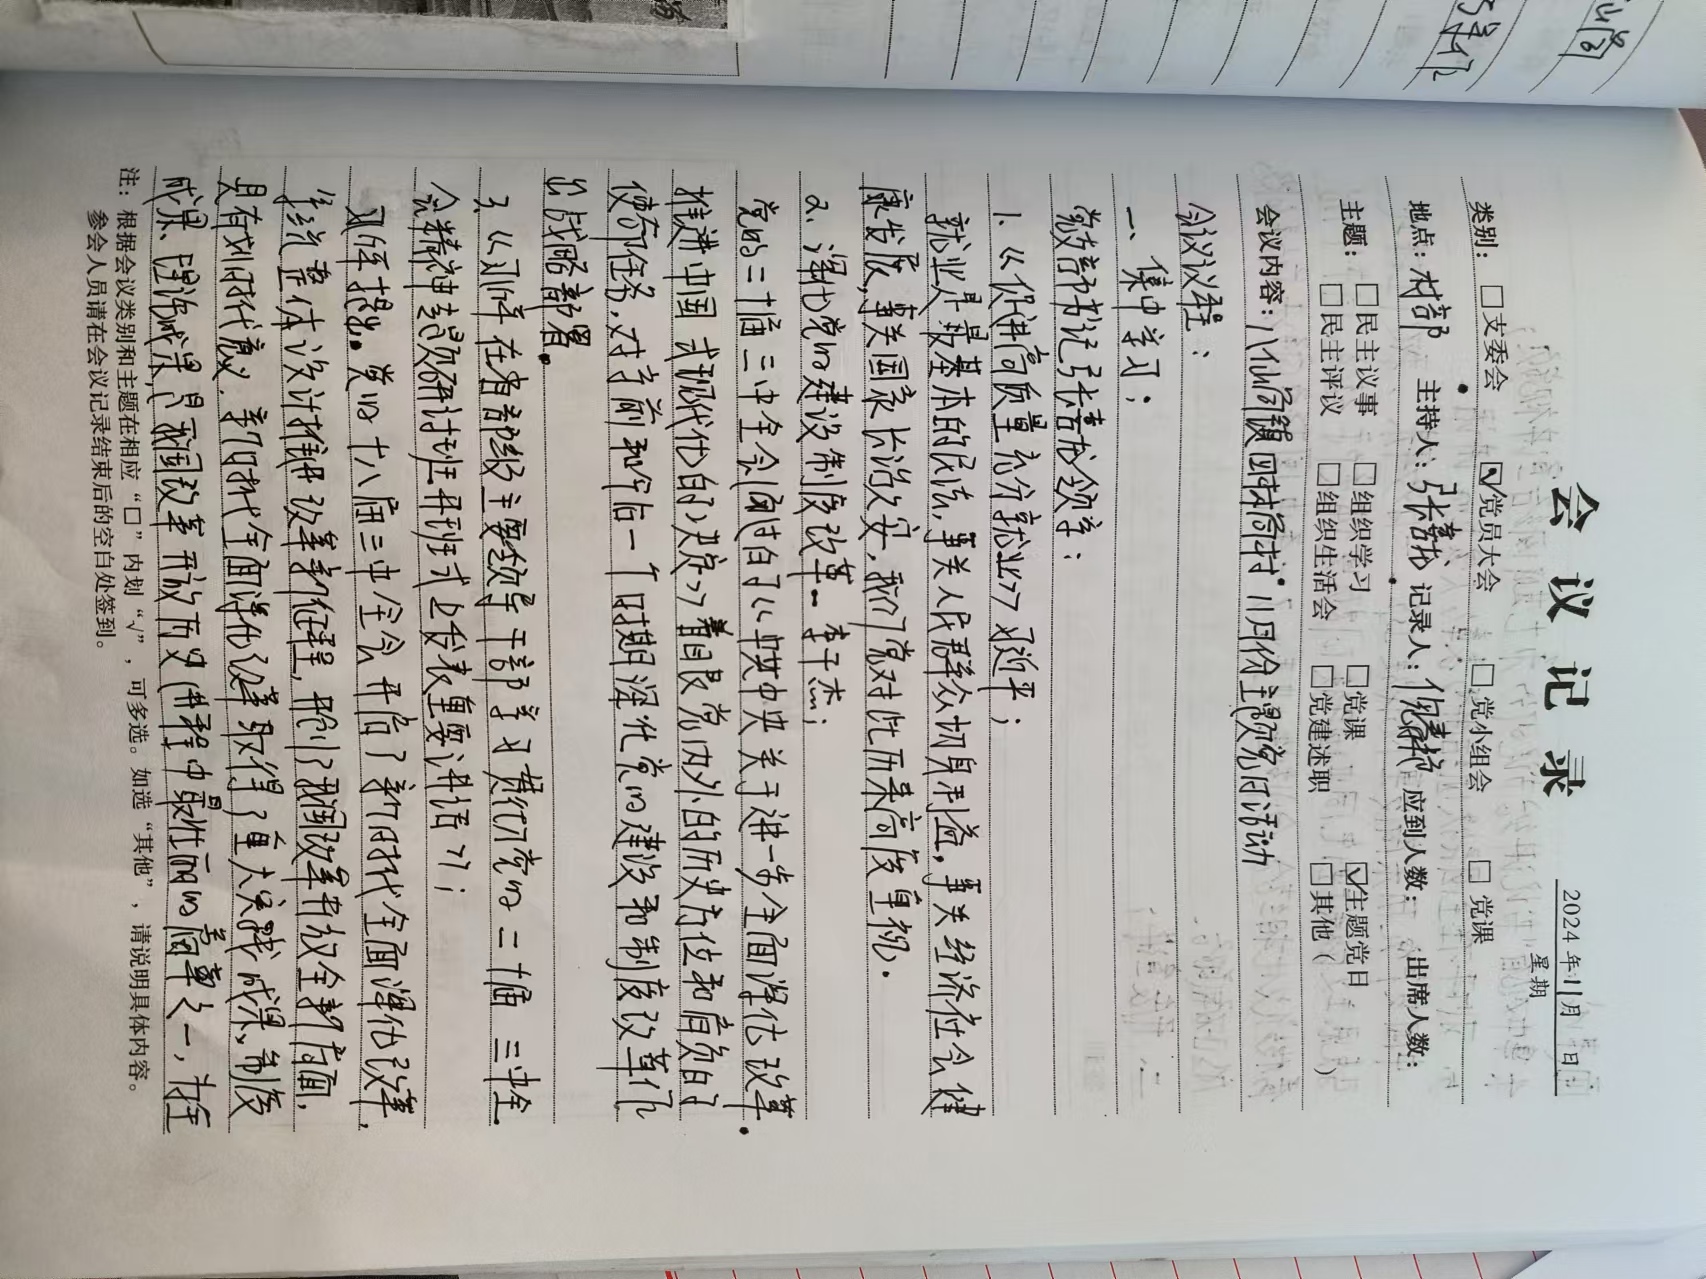 会议记录
2024年11月 日
星期
类别： □支委会 ☑党员大会 □党小组会 □党课
地点：村部 主持人：张喜成 记录人： 应到人数： 出席人数：
主题：□民主议事 □组织学习 □党课 ☑主题党日
□民主评议 □组织生活会 □党建述职 □其他（ ）
会议内容：八仙筒镇 11月份主题党日活动
会议议程：
一、集中学习：
党支部书记张喜成领学：
1.《促进高质量充分就业》习近平；
就业是最基本的民生，事关人民群众切身利益，事关经济社会健
康发展，事关国家长治久安，我们党对此历来高度重视。
2、深化党的建设制度改革－李干杰；
党的二十届三中全会通过的《中共中央关于进一步全面深化改革、
推进中国式现代化的决定》着眼党内外的历史方位和肩负的
使命任务，对当前和今后一个时期深化党的建设和制度改革作
出战略部署。
3、《习 在省部级主要领导干部学习贯彻党的二十届三中全
会精神专题研讨班开班式上发表重要讲话》；
习 提出。党的十八届三中全会开启了新时代全面深化改革、
系统整体设计推进改革新征程，开创了我国改革开放全新局面，
具有划时代意义，新时代全面深化改革取得了重大实践成果、制度
成果、理论成果，是我国改革开放历史进程中最壮丽的篇章之一，为全
注：根据会议类别和主题在相应“□”内划“√”，可多选。如选“其他”，请说明具体内容。
参会人员请在会议记录结束后的空白处签到。